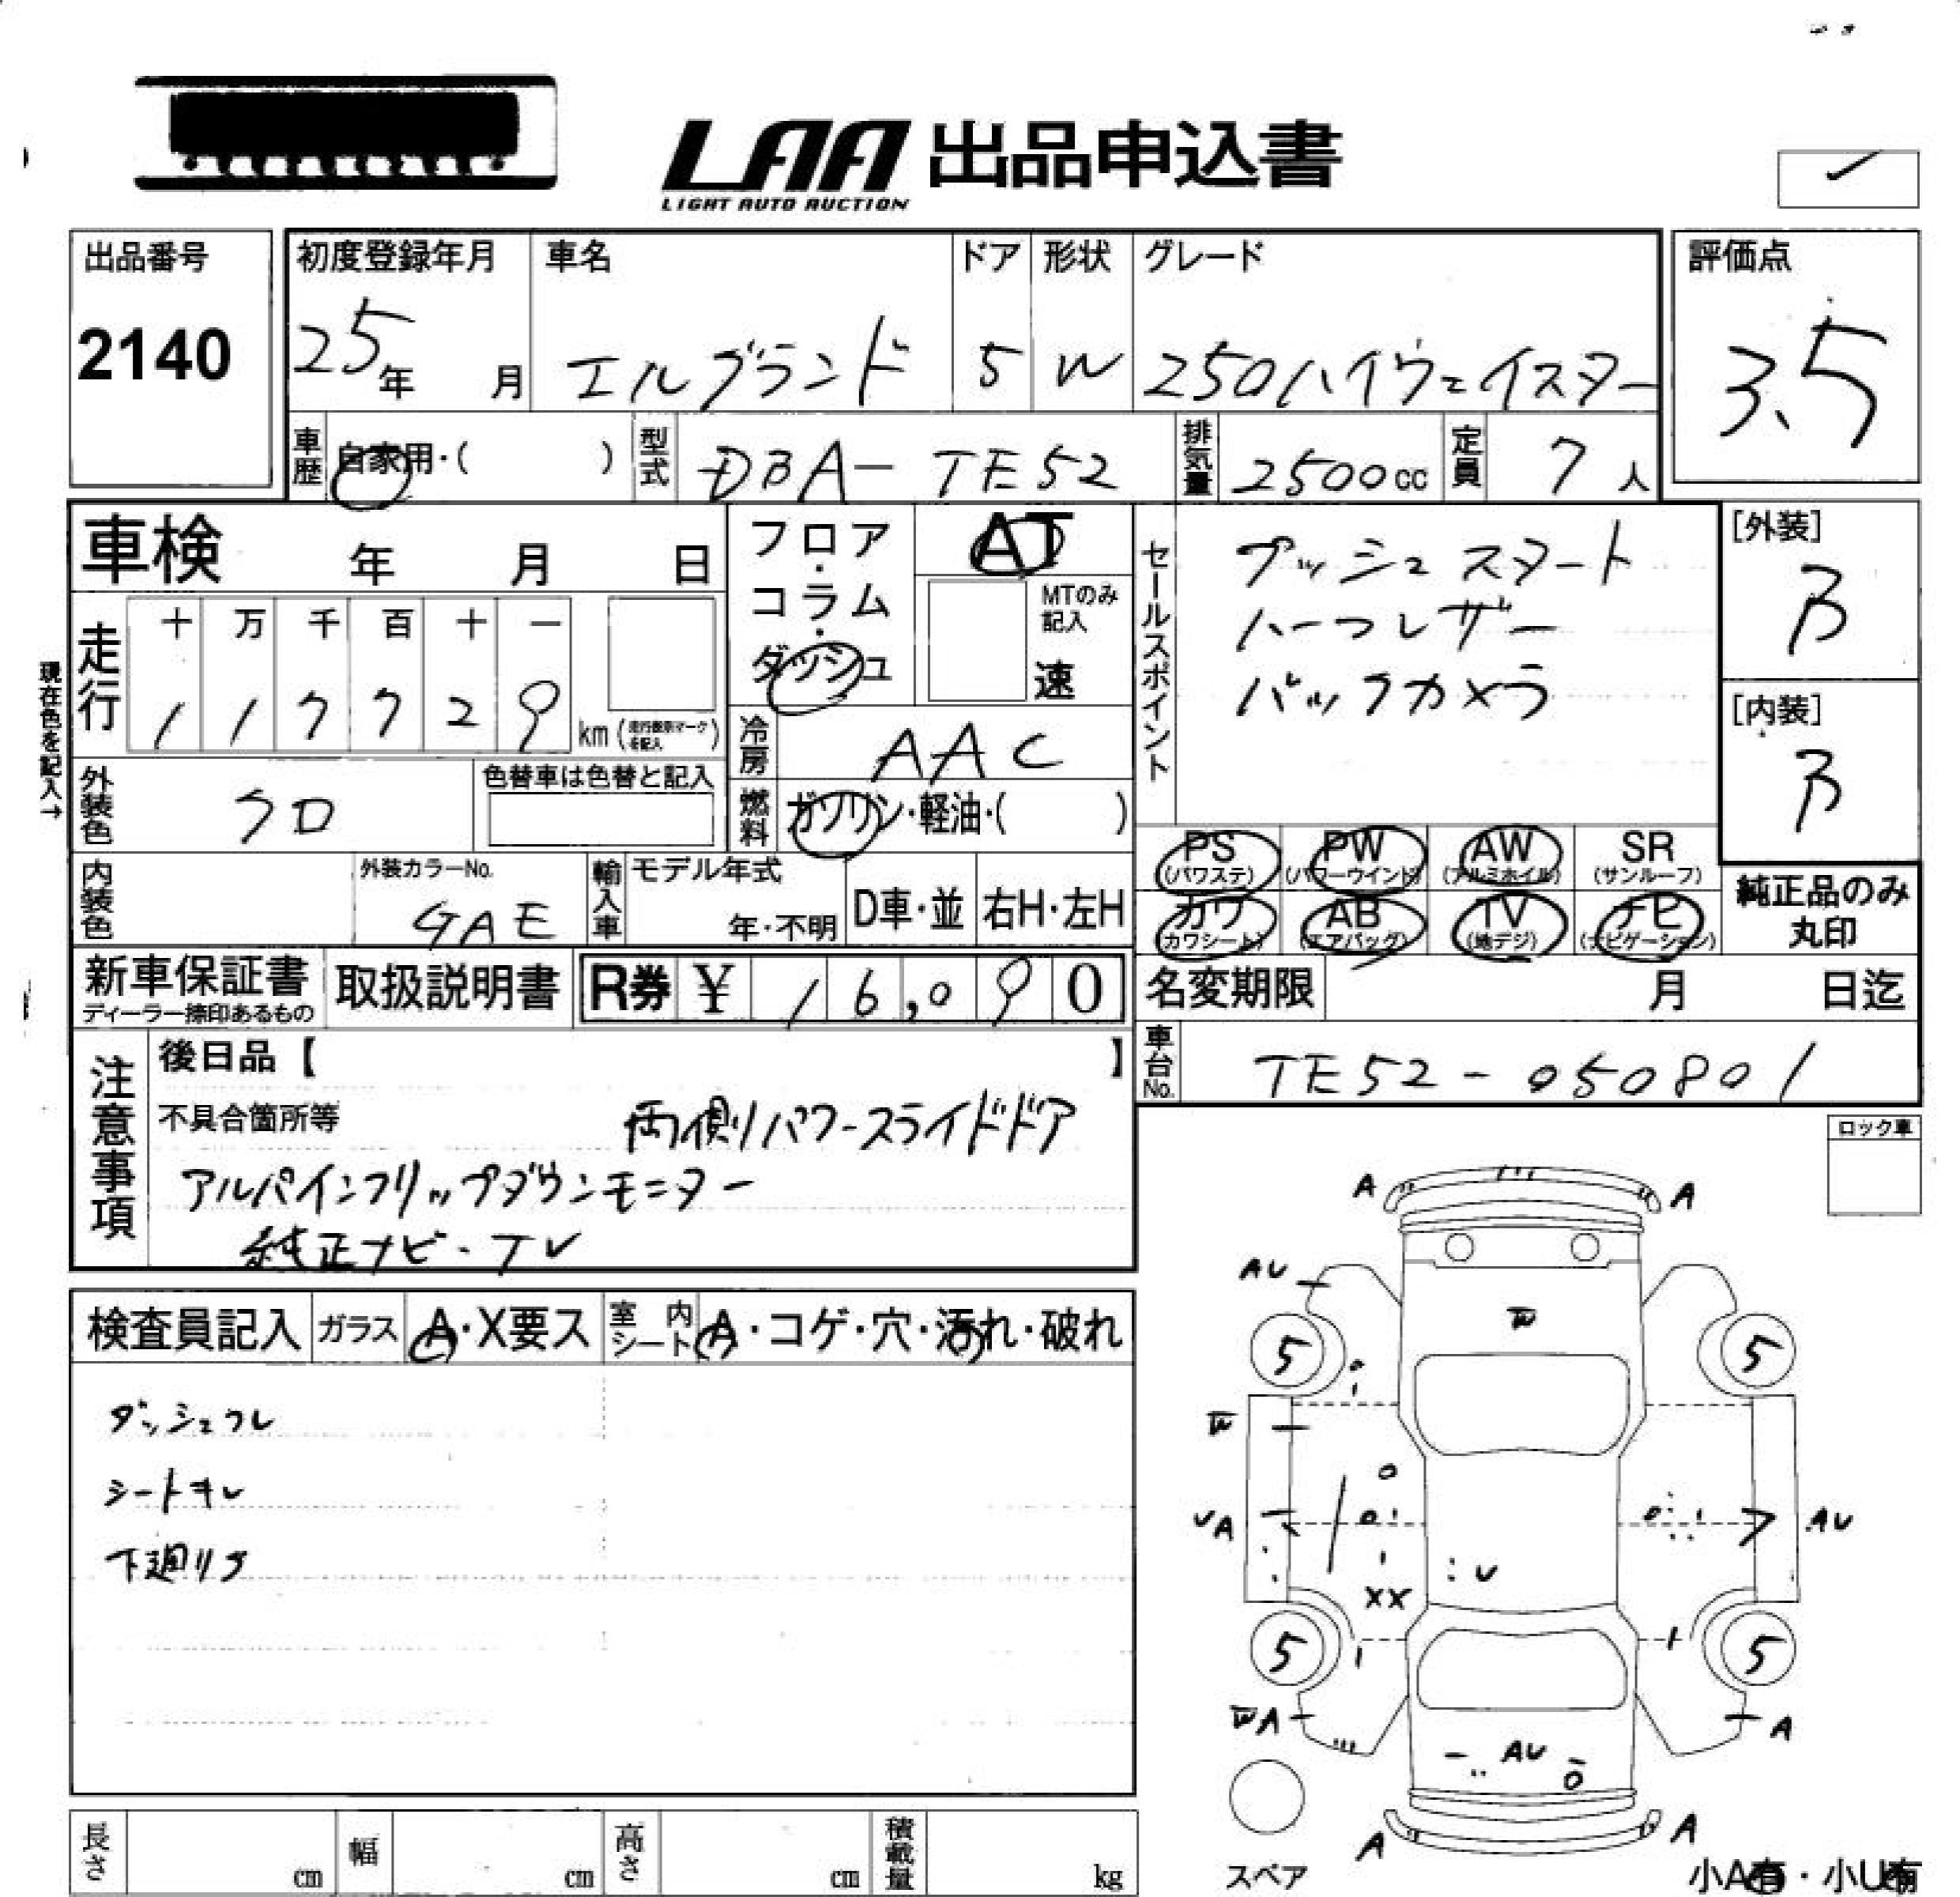 LAA 出品申込書
LIGHT AUTO AUCTION
出品番号
2140
初度登録年月
25年 月
車名
エルグランド
ドア
5
形状
W
グレード
250ハイウェイスター
評価点
3.5
車歴 自家用・( )
型式 DBA-TE52
排気量 2500cc
定員 7人
車検 年 月 日
フロア・コラム・ダッシュ
AT
MTのみ記入
速
セールスポイント
プッシュスタート
ハーフレザー
バックカメラ
[外装]
B
[内装]
B
現在色を記入→
走行
十 万 千 百 十 一
1 1 7 7 2 9 km
冷房 AAC
外装色 クロ
色替車は色替と記入
燃料 ガソリン・軽油・( )
PS (パワステ)
PW (パワーウインド)
AW (アルミホイル)
SR (サンルーフ)
カワ (カワシート)
AB (エアバッグ)
TV (地デジ)
ナビ (ナビゲーション)
純正品のみ丸印
内装色
外装カラーNo.
GAE
輸入車
モデル年式
年・不明
D車・並
右H・左H
新車保証書
ディーラー捺印あるもの
取扱説明書
R券 ¥ 16,090
名変期限 月 日迄
車台No. TE52-050801
注意事項
後日品【 】
不具合箇所等
両側パワースライドドア
アルパインフリップダウンモニター
純正ナビ・TV
ロック車
検査員記入
ガラス A・X要ス
室内シート A・コゲ・穴・汚れ・破れ
ダッシュフレ
シートキレ
下廻りサ
A A
AU
W
5 5
W
UA AU
XX U
5 5
WA A
AU
A A
スペア
小A有・小U有
長さ cm
幅 cm
高さ cm
積載量 kg